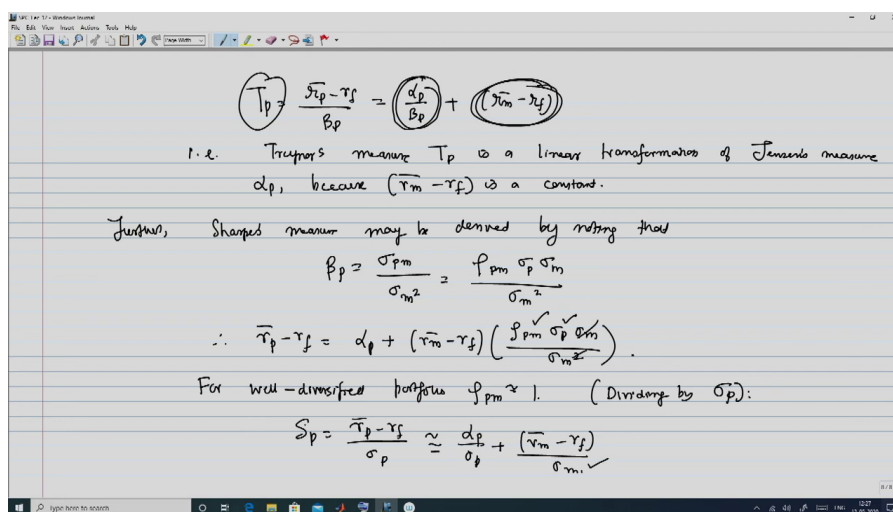 SPC Lec 12 - Windows Journal
File Edit View Insert Actions Tools Help
Page Width
T_p = (r̄_p - r_f) / β_p = α_p / β_p + (r̄_m - r_f)
i.e. Treynor's measure T_p is a linear transformation of Jensen's measure
α_p, because (r̄_m - r_f) is a constant.
Further, Sharpe's measure may be derived by noting that
β_p = σ_pm / σ_m² = ρ_pm σ_p σ_m / σ_m²
∴ r̄_p - r_f = α_p + (r̄_m - r_f) (ρ_pm σ_p σ_m / σ_m²).
For well-diversified portfolios ρ_pm ≈ 1. (Dividing by σ_p):
S_p = (r̄_p - r_f) / σ_p ≅ α_p / σ_p + (r̄_m - r_f) / σ_m.
8/8
Type here to search
ENG
12:27